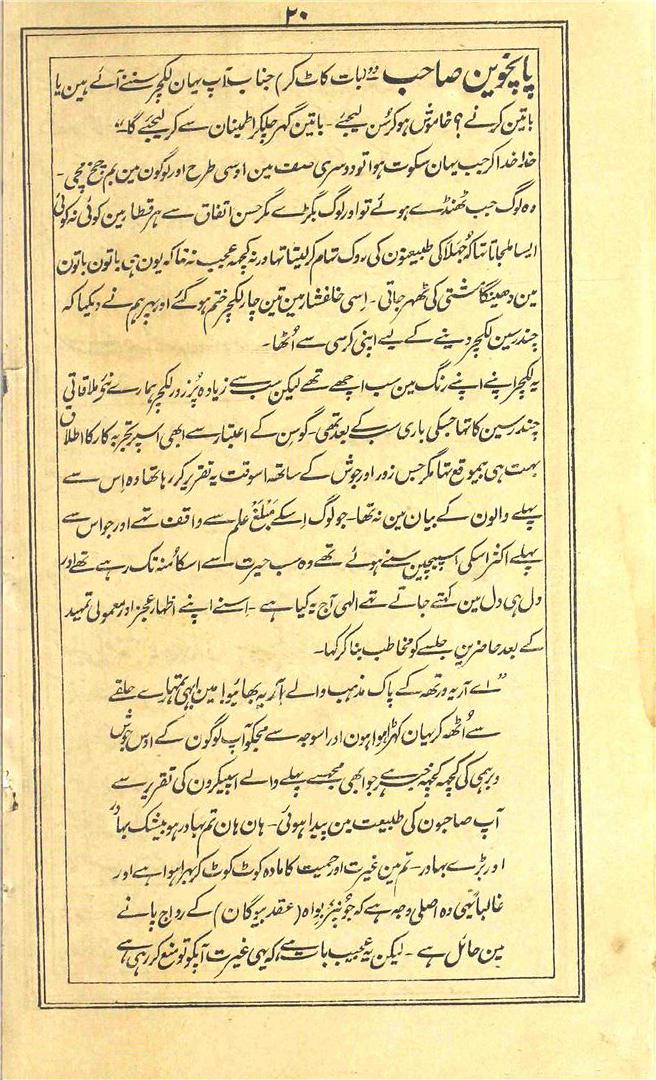 ۲۰
پانچوین صاحب "(بات کاٹ کر) جناب آپ یہان لکچر سننے آئے ہین یا
باتین کرنے؟ خاموش ہوکر سُن لیجئے - باتین گھر چلکر اطمینان سے کر لیجئے گا۔"
خدا خدا کر جب یہان سکوت ہوا تو دوسری صف مین اوسی طرح اور لوگون مین بم چخ مچی -
وہ لوگ جب ٹھنڈے ہوئے تو اور لوگ بگڑے مگر حسن اتفاق سے ہر قطار مین کوئی نہ کوئی
ایسا ملجاتا تھا کہ جُہلا کی طبیعتون کی روک تھام کر لیتا تھا ورنہ کچھ عجیب نہ تھا کہ یون ہی باتون باتون
مین دھینگا مُشتی کی ٹھہر جاتی - اِسی خلفشار مین تین چار لکچر ختم ہوگئے اور پھر ہم نے دیکھا کہ
چندرسین لکچر دینے کے لیے اپنی کرسی سے اُٹھا -
یہ لکچر اپنے اپنے رنگ مین سب اچھے تھے لیکن سب سے زیادہ پُرزور لکچر ہمارے نئے ملاقاتی
چندرسین کا تھا جسکی باری سب کے بعد تھی - گو سِن کے اعتبار سے ابھی اسپر تجربہ کار کا اطلاق
بہت ہی بیموقع تھا مگر جس زور اور جوش کے ساتھ اسوقت یہ تقریر کر رہا تھا وہ اِس سے
پہلے والون کے بیان مین نہ تھا - جو لوگ اِسکے مَبْلَغِ علم سے واقف تھے اور جو اس سے
پہلے اکثر اسکی اسپیچین سنے ہوئے تھے وہ سب حیرت سے اسکا مُنہ تک رہے تھے اور
دل ہی دل مین کہتے جاتے تھے الٰہی آج یہ کیا ہے - اِسنے اپنے اظہار عجز اور معمولی تمہید
کے بعد حاضرین جلسے کو مخاطب بنا کر کہا -
"اے آریہ ورتھ کے پاک مذہب والے آریہ بھائیو! مین ابھی تمہارے حلقے
سے اُٹھ کر یہان کھڑا ہوا ہون اور اسوجہ سے مجکو آپ لوگون کے اوس جوش
و برہمی کی کچھ کچھ خبر ہے جو ابھی مجھسے پہلے والے اسپیکرون کی تقریر سے
آپ صاحبون کی طبیعت مین پیدا ہوئی - ہان ہان تم بہادر ہو بیشک بہادر
اور بڑے بہادر - تم مین غیرت اور حمیت کا مادہ کوٹ کوٹ کر بھرا ہوا ہے اور
غالباً یہی وہ اصلی وجہ ہے کہ جو پُنر بواہ (عقد بیوگان) کے رواج پانے
مین حائل ہے - لیکن یہ عجیب بات ہے کہ یہی غیرت آپکو تو منع کر رہی ہے